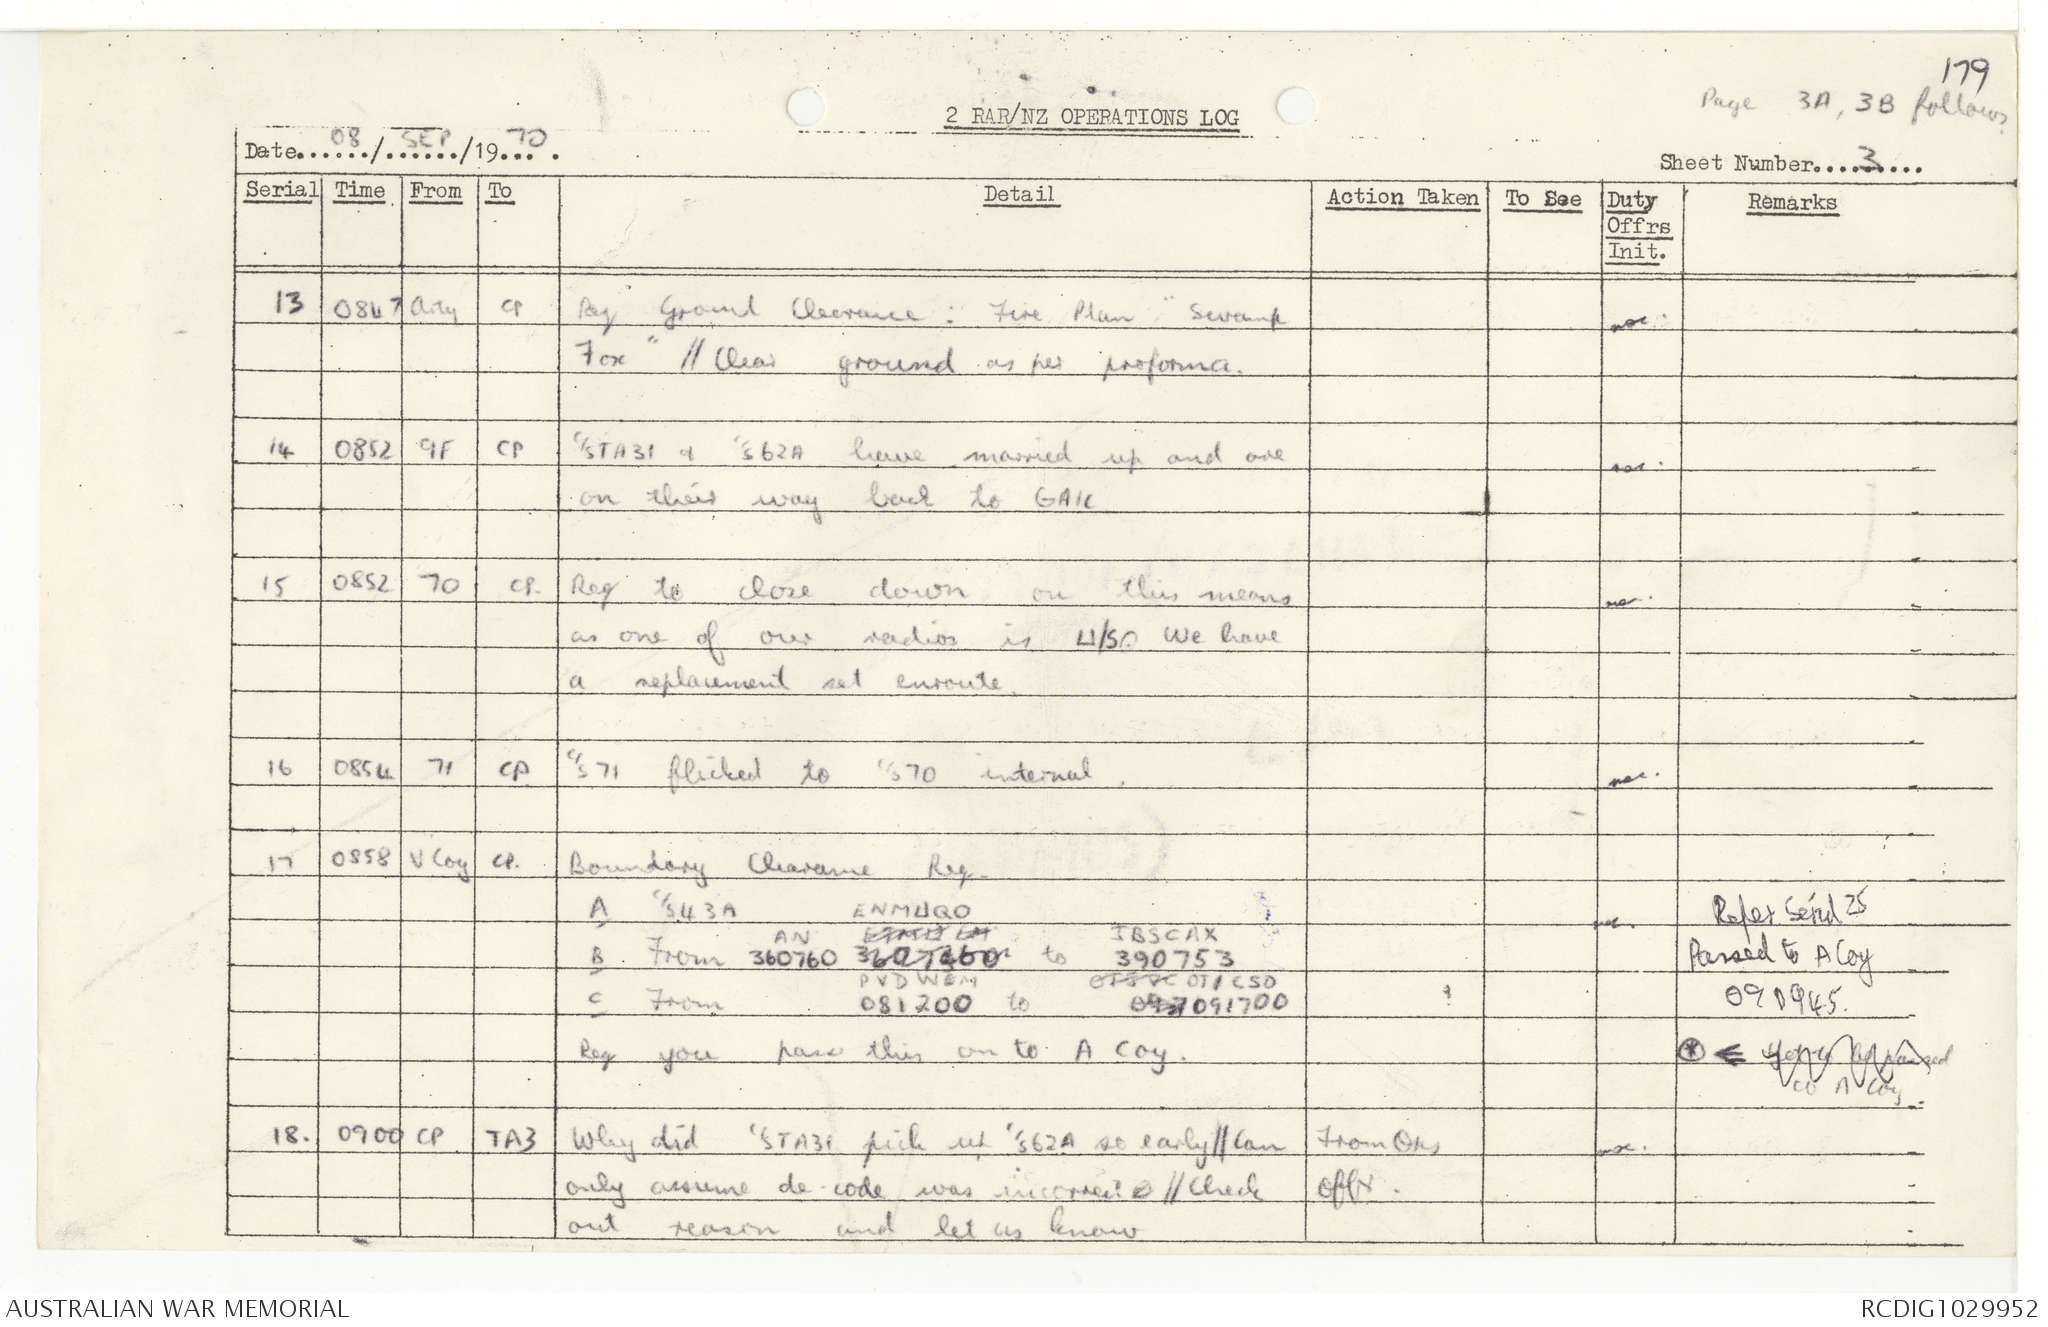 179
Page 3A, 3B follows
2 RAR/NZ OPERATIONS LOG
Date 08/SEP/1970.
Sheet Number 3
Serial Time From To Detail Action Taken To See Duty Offrs Init. Remarks
13 0847 Arty CP Req Ground Clearance: Fire Plan "Swamp
Fox" // Clear ground as per proforma.
14 0852 9F CP C/S TA31 & C/S 62A have married up and are
on their way back to GAIL
15 0852 70 CP. Req to close down on this means
as one of our radios is U/S. We have
a replacement set enroute.
16 0854 71 CP C/S 71 flicked to C/S 70 internal.
17 0858 V Coy CP. Boundary Clearance Req.
A C/S 43A ENMUQO
Refer Serial 25
AN JBSCAX
B From 360760 360760 to 390753
Passed to A Coy
PVDWEM OTICSO
C From 081200 to 091700
090945.
Req you pass this on to A Coy.
to A Coy
18. 0900 CP TA3 Why did C/S TA31 pick up C/S 62A so early // Can From Ops
only assume de-code was incorrect // Check Offr.
out reason and let us know
AUSTRALIAN WAR MEMORIAL
RCDIG1029952